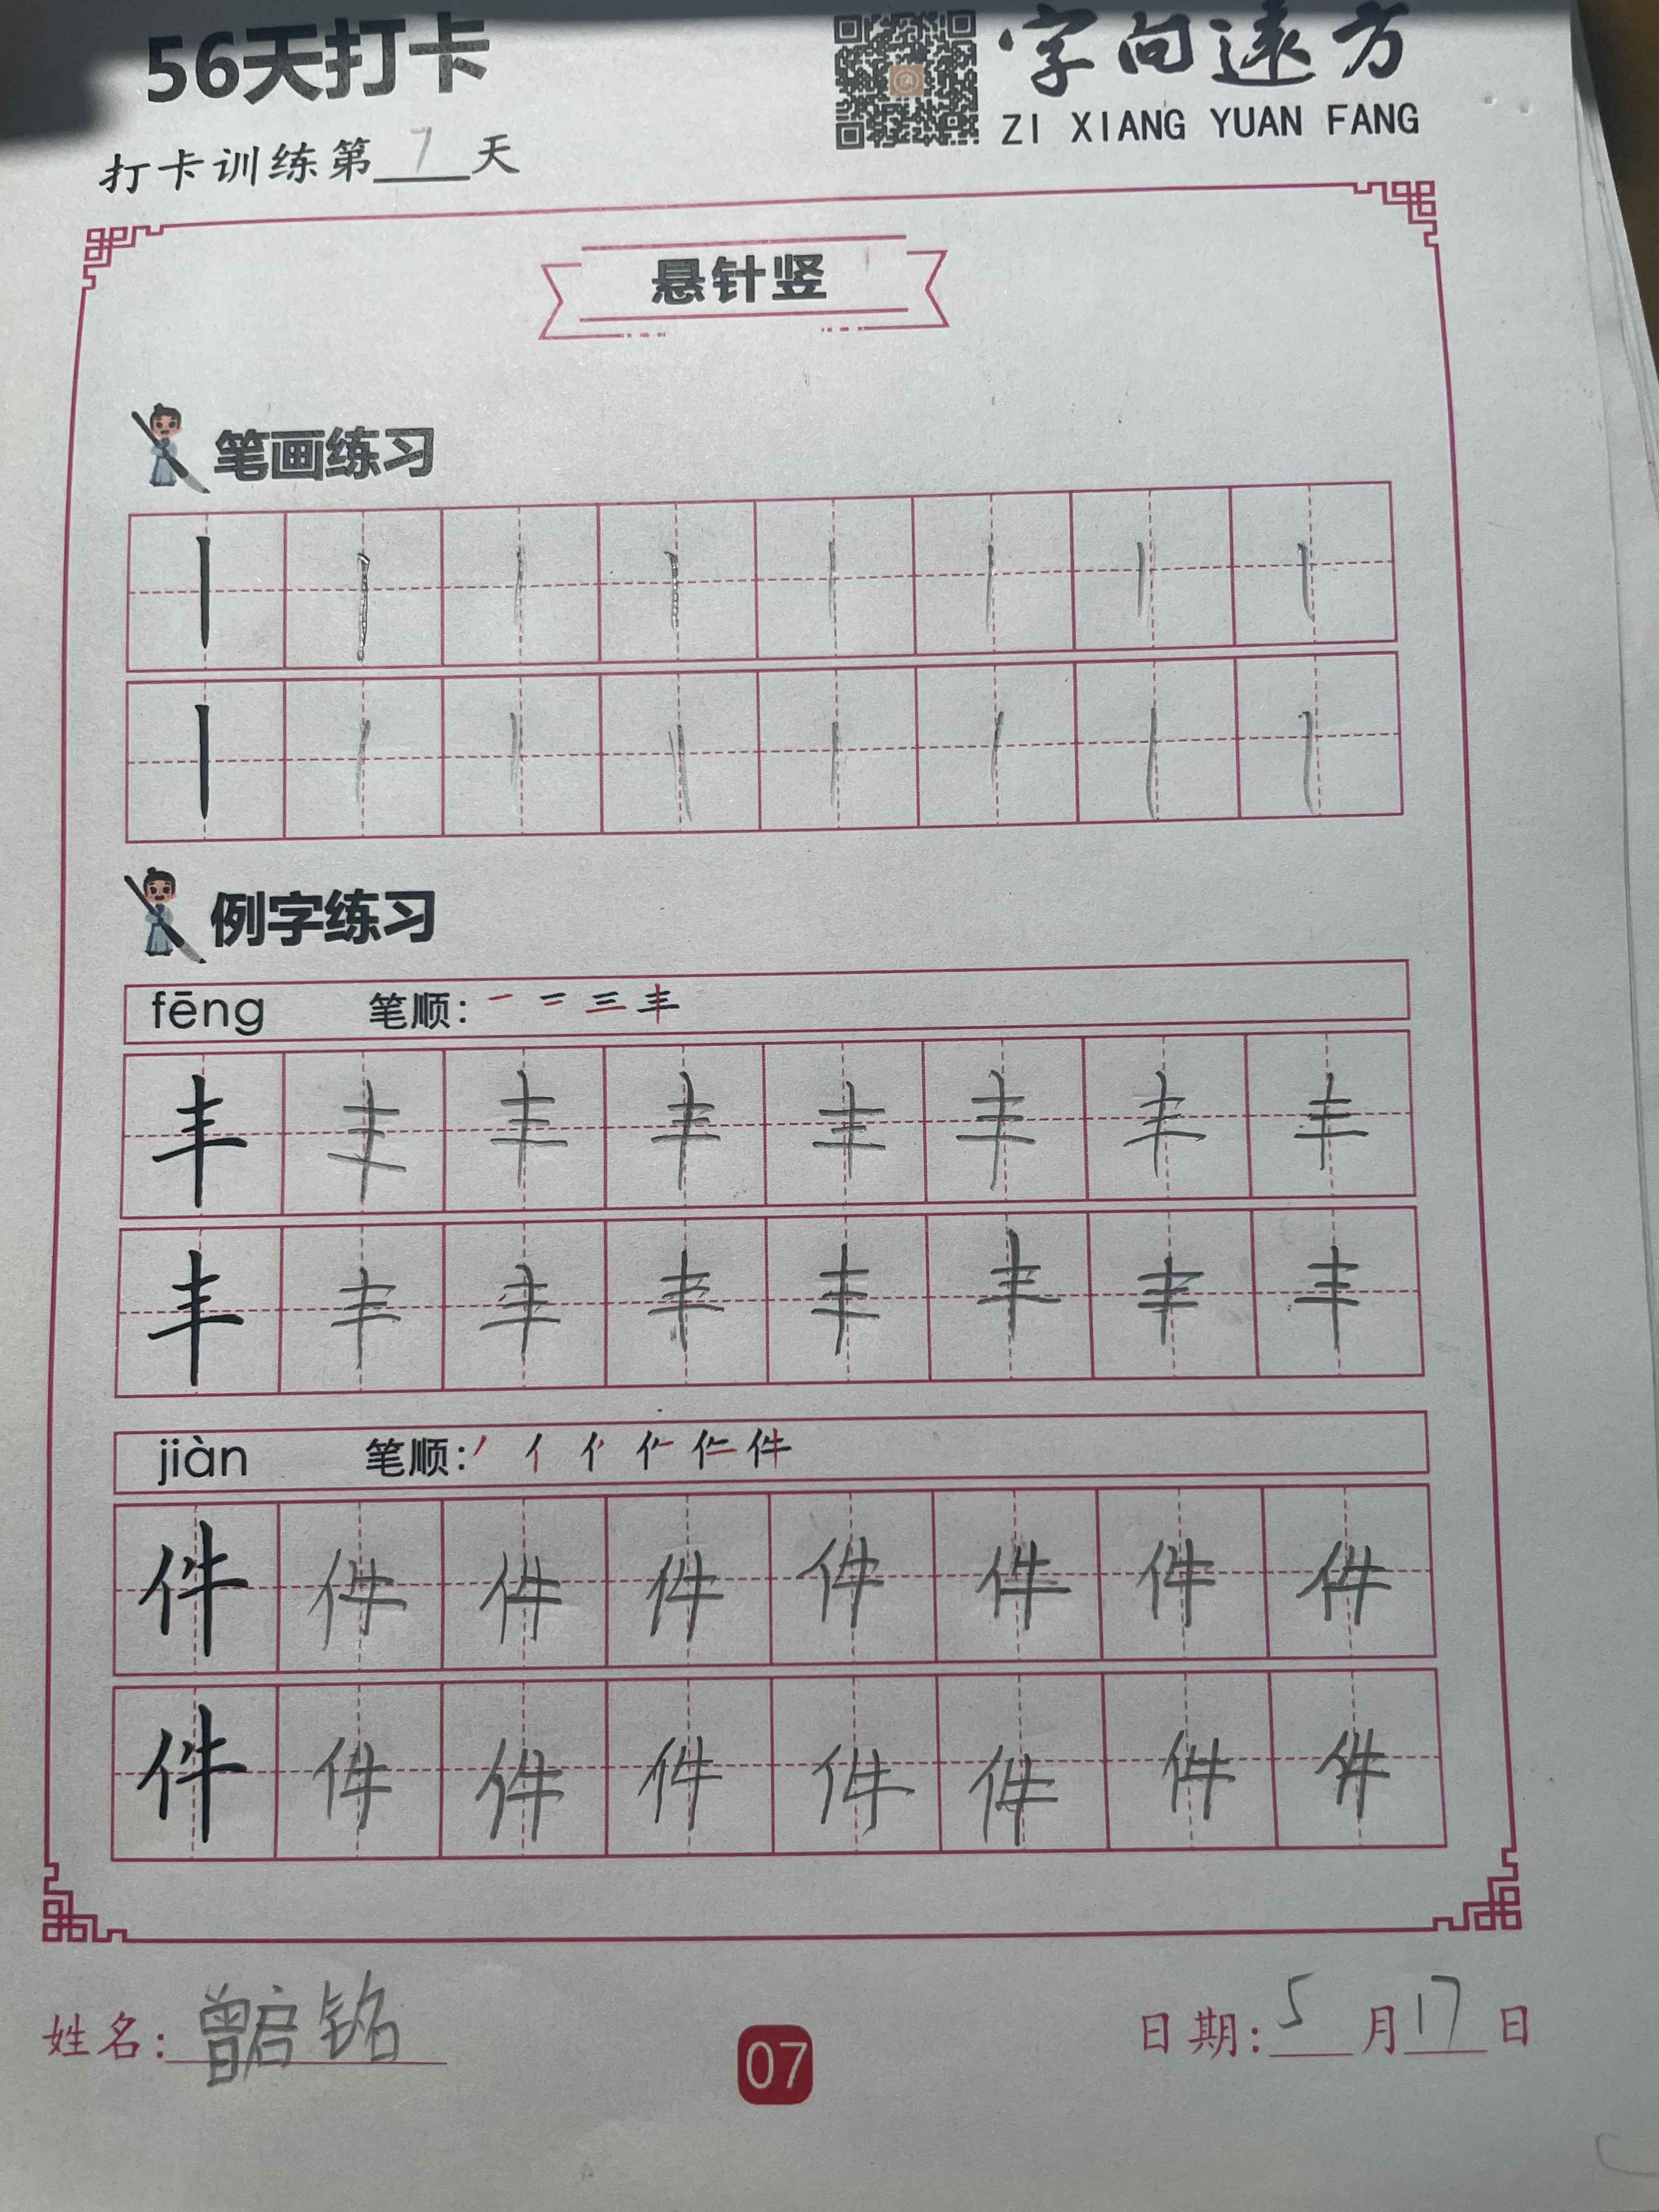 56天打卡
字向远方
ZI XIANG YUAN FANG
打卡训练第7天
悬针竖
笔画练习
丨丨丨丨丨丨丨丨
丨丨丨丨丨丨丨丨
例字练习
fēng 笔顺: 一 二 三 丰
丰丰丰丰丰丰丰丰
丰丰丰丰丰丰丰丰
jiàn 笔顺: 丿 亻 件
件件件件件件件件
件件件件件件件件
姓名: 曾启铭
07
日期: 5月17日